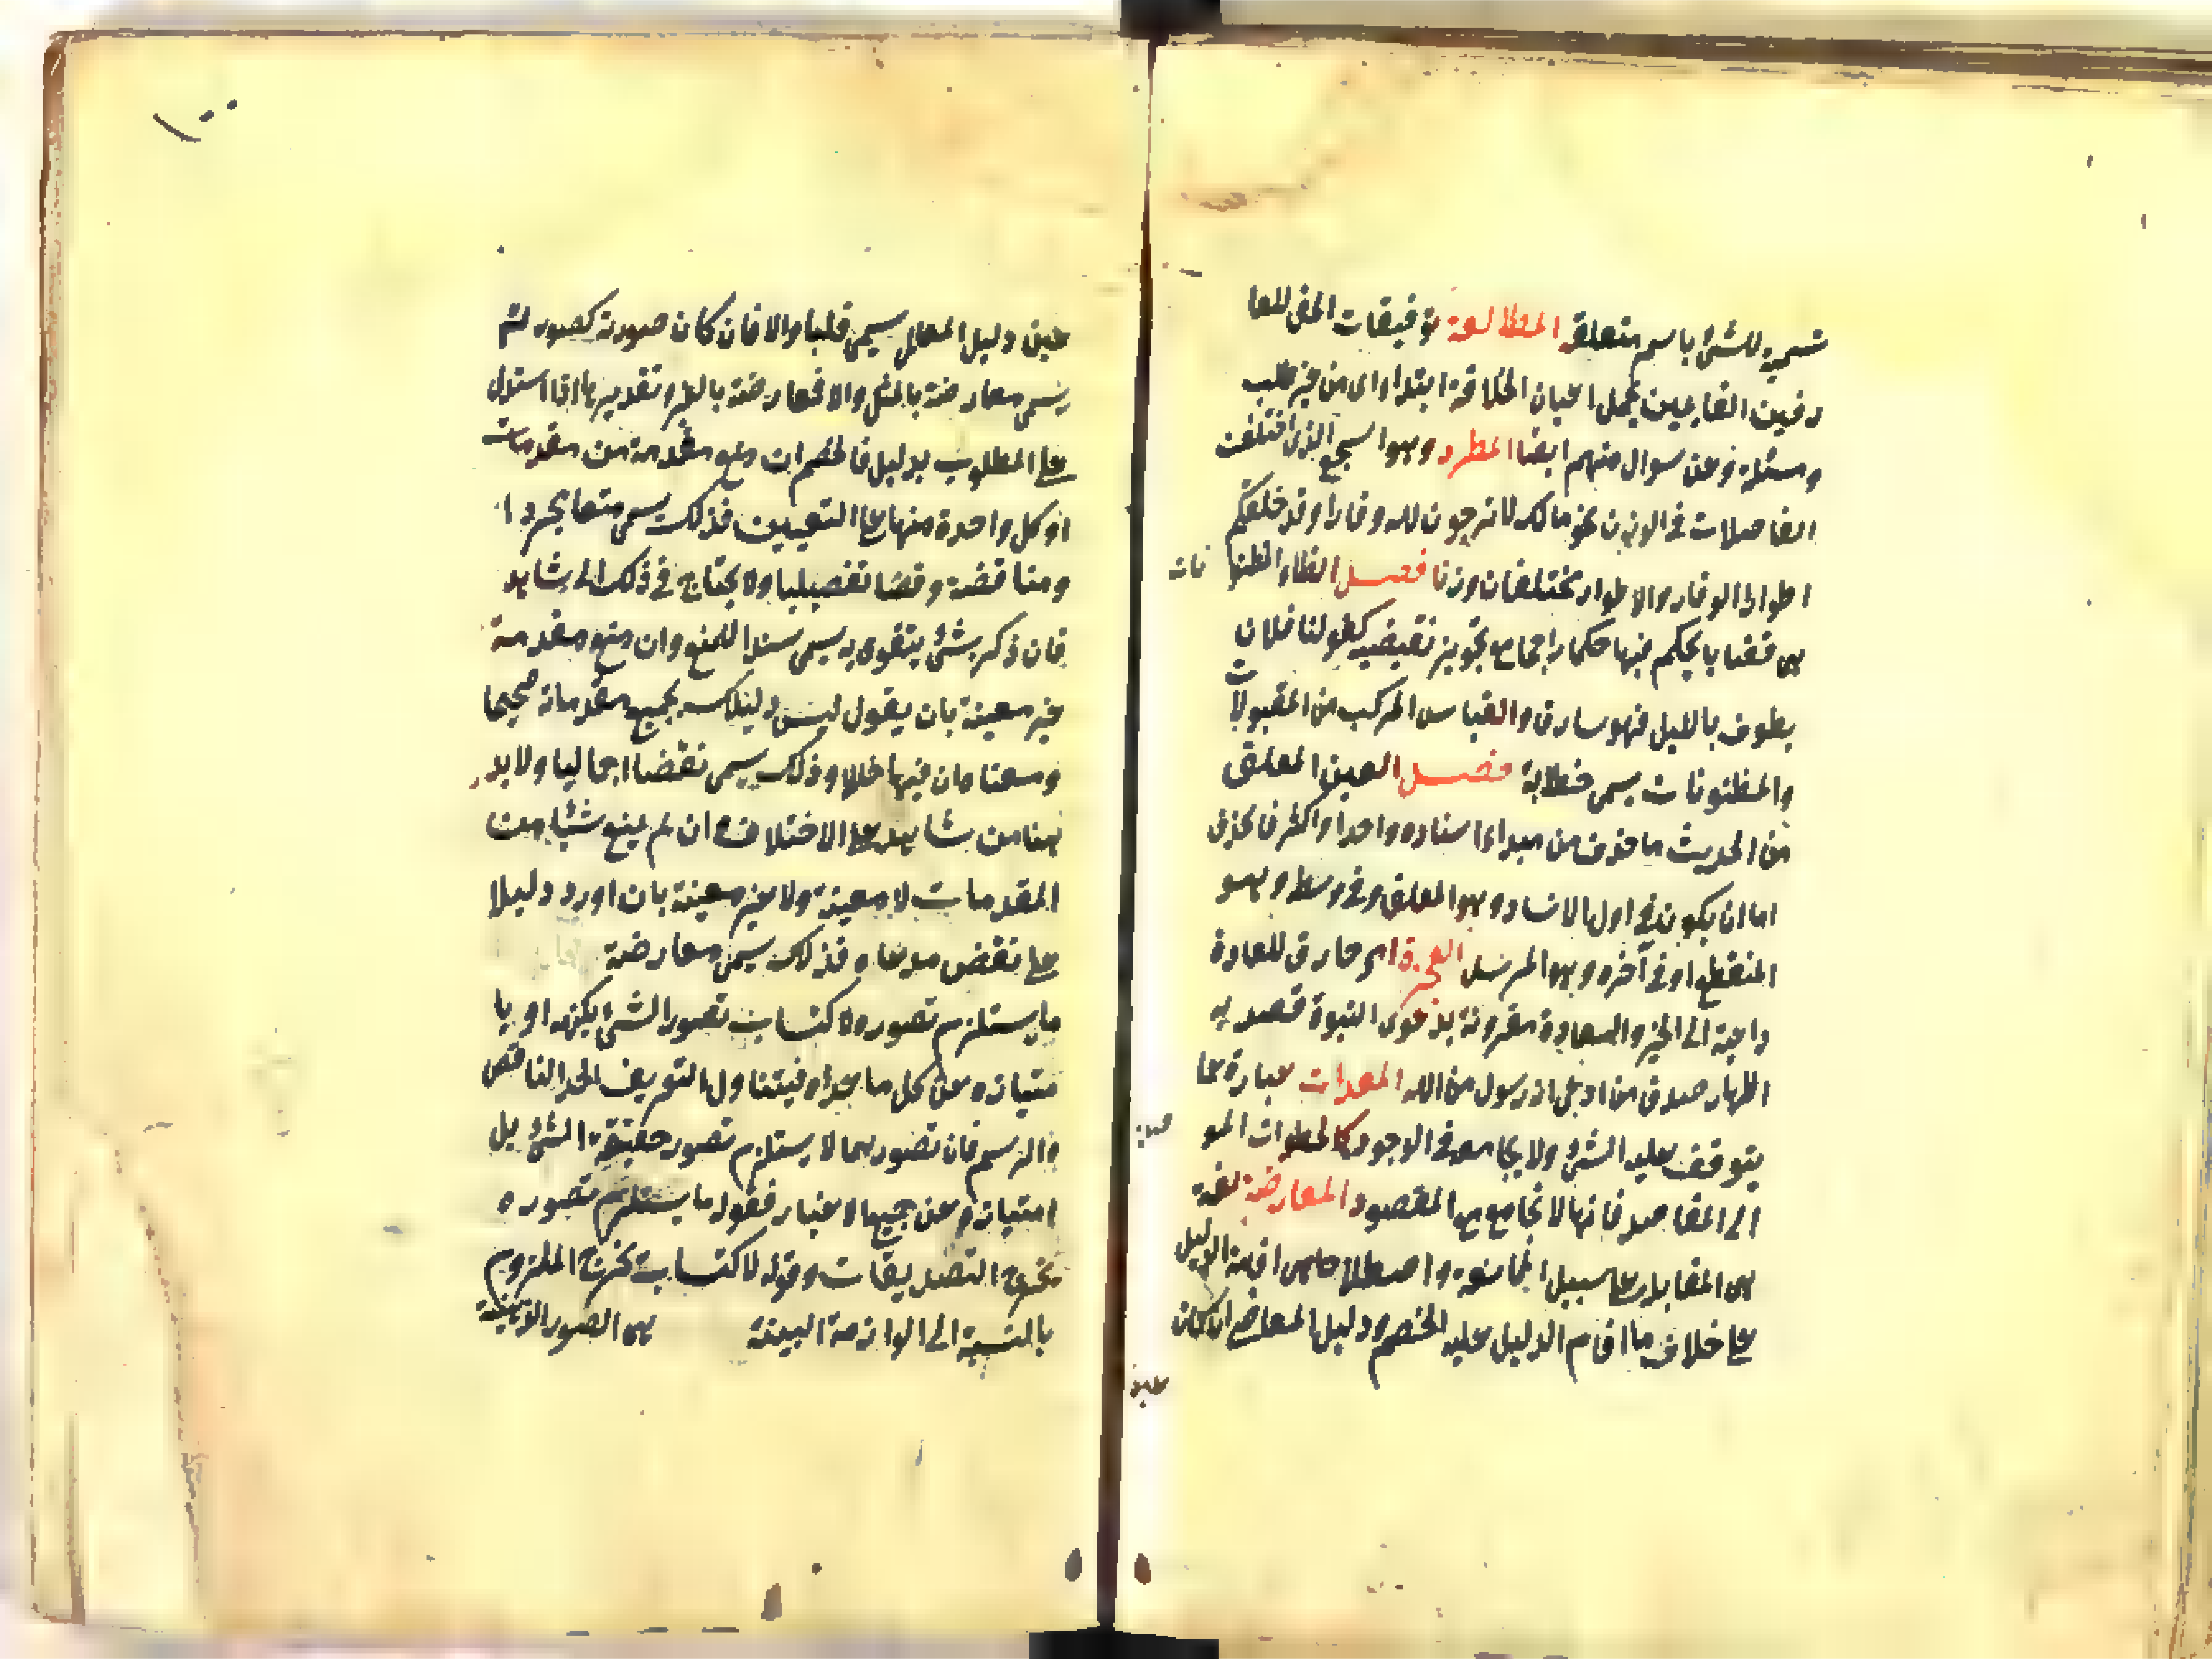 تسمية للشئ باسم متعلقه المطالعة توفيقات الحق للعا
رفين القايمين بحمل اعباء الخلافة ابتداء اى من غير طلب
ومسئلة وعن سوال منهم ايضا المطرد وهو السجع الذى اختلفت
الفاصلات فى الوزن نحو مالكم لا ترجون لله وقارا وقد خلقكم
اطوارا الوقار والاطوار مختلفان وزنا فصل الظا المظنو نات
هى قضايا يحكم فيها حكما راجحا مع تجويز نقيضه كقولنا فلان
يطوف بالليل فهو سارق والقياس المركب من المقبولات
والمظنونات يسمى خطابة فصل العين المعلق
من الحديث ما حذف من مبداء اسناده واحد او اكثر فالحذف
اما ان يكون فى اول الاسناد وهو المعلق وفى وسطه وهو
المنقطع او فى آخره وهو المرسل المعجزة امر خارق للعادة
داعية الى الخير والسعادة مقرونة بدعوى النبوة قصد به
اظهار صدق من ادعى انه رسول من الله المعدات عبارة عما
يتوقف عليه الشئ ولا يجامعه فى الوجود كالخطوات المو صلة
الى المقاصد فانها لا تجامع مع المقصود المعارضة لغة
هى المقابلة على سبيل الممانعة واصطلاحا هى اقامة الدليل
على خلاف ما اقام الدليل عليه الخصم ودليل المعارض ان كان
عين
عين دليل المعلل يسمى قلبا والا فان كان صورته كصورته
يسمى معارضة بالمثل والا فمعارضة بالغير وتقديرها اذا استدل
على المطلوب بدليل فالخصم ان منع مقدمة من مقدماته
او كل واحدة منها على التعيين فذلك يسمى منعا مجردا
ومناقضة ونقضا تفصيليا ولا يحتاج فى ذلك الى شاهد
فان ذكر شئ يتقوى به يسمى سندا للمنع وان منع مقدمة
غير معينة بان يقول ليس دليلك بجميع مقدماته صحيحا
ومعناه ان فيها خللا وذلك يسمى نقضا اجماليا ولا بد
هنا من شاهد على الاختلاف ان لم يمنع شئا من
المقدمات لا معينة ولا غير معينة بان اورد دليلا
على نقض مدعاه فذلك يسمى معارضة
ما يستلزم تصوره اكتساب تصور الشئ بكنهه او با
متيازه عن كل ما عداه فيتناول التعريف الحد الناقص
والرسم فان تصورهما لا يستلزم تصور حقيقة الشئ بل
امتيازه عن جميع الاغيار فقوله ما يستلزم تصوره
تخرج التصديقات وقوله لاكتساب تخرج الملزوم
بالنسبة الى الوازمة البينة هى الصور